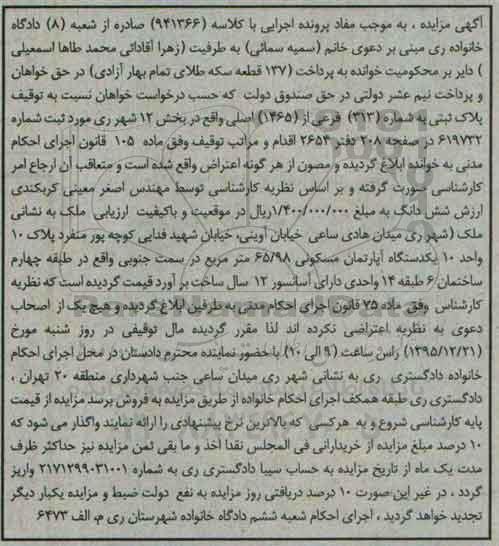 آگهی مزایده ، به موجب مفاد پرونده اجرایی با کلاسه (۹۴۱۳۶۶) صادره از شعبه (۸) دادگاه
خانواده ری مبنی بر دعوی خانم (سمیه سمائی) به طرفیت (زهرا آقادائی محمد طاها اسمعیلی
) دایر بر محکومیت خوانده به پرداخت (۱۳۷ قطعه سکه طلای تمام بهار آزادی) در حق خواهان
و پرداخت نیم عشر دولتی در حق صندوق دولت که حسب درخواست خواهان نسبت به توقیف
پلاک ثبتی به شماره (۳۱۳) فرعی از (۱۴۶۵) اصلی واقع در بخش ۱۲ شهر ری مورد ثبت شماره
۶۱۹۷۳۲ در صفحه ۲۰۸ دفتر ۲۶۵۴ اقدام و مراتب توقیف وفق ماده ۱۰۵ قانون اجرای احکام
مدنی به خوانده ابلاغ گردیده و مصون از هر گونه اعتراض واقع شده است و متعاقب آن ارجاع امر
کارشناسی صورت گرفته و بر اساس نظریه کارشناسی توسط مهندس اصغر معینی کربکندی
ارزش شش دانگ به مبلغ ۱/۴۰۰/۰۰۰/۰۰۰ریال در موقعیت و باکیفیت ارزیابی ملک به نشانی
ملک (شهر ری میدان هادی ساعی خیابان آوینی، خیابان شهید فدایی کوچه پور منفرد پلاک ۱۰
واحد ۱۰ یکدستگاه آپارتمان مسکونی ۶۵/۹۸ متر مربع در سمت جنوبی واقع در طبقه چهارم
ساختمان ۶ طبقه ۱۴ واحدی دارای آسانسور ۱۲ سال ساخت بر آورد قیمت گردیده است که نظریه
کارشناس وفق ماده ۷۵ قانون اجرای احکام مدنی به طرفین ابلاغ گردیده و هیچ یک از اصحاب
دعوی به نظریه اعتراضی نکرده اند لذا مقرر گردیده مال توقیفی در روز شنبه مورخ
(۱۳۹۵/۱۲/۲۱) راس ساعت (۹ الی ۱۰) با حضور نماینده محترم دادستان در محل اجرای احکام
خانواده دادگستری ری به نشانی شهر ری میدان ساعی جنب شهرداری منطقه ۲۰ تهران ،
دادگستری ری طبقه همکف اجرای احکام خانواده از طریق مزایده به فروش برسد مزایده از قیمت
پایه کارشناسی شروع و به هرکسی که بالاترین نرخ پیشنهادی را ارائه نمایند واگذار می شود که
۱۰ درصد مبلغ مزایده از خریدارانی فی المجلس نقدا اخذ و ما بقی ثمن مزایده نیز حداکثر ظرف
مدت یک ماه از تاریخ مزایده به حساب سیبا دادگستری ری به شماره ۲۱۷۱۲۹۹۰۳۱۰۰۱ واریز
گردد ، در غیر این صورت ۱۰ درصد دریافتی روز مزایده به نفع دولت ضبط و مزایده یکبار دیگر
تجدید خواهد گردید ، اجرای احکام شعبه ششم دادگاه خانواده شهرستان ری م. الف ۶۴۷۳